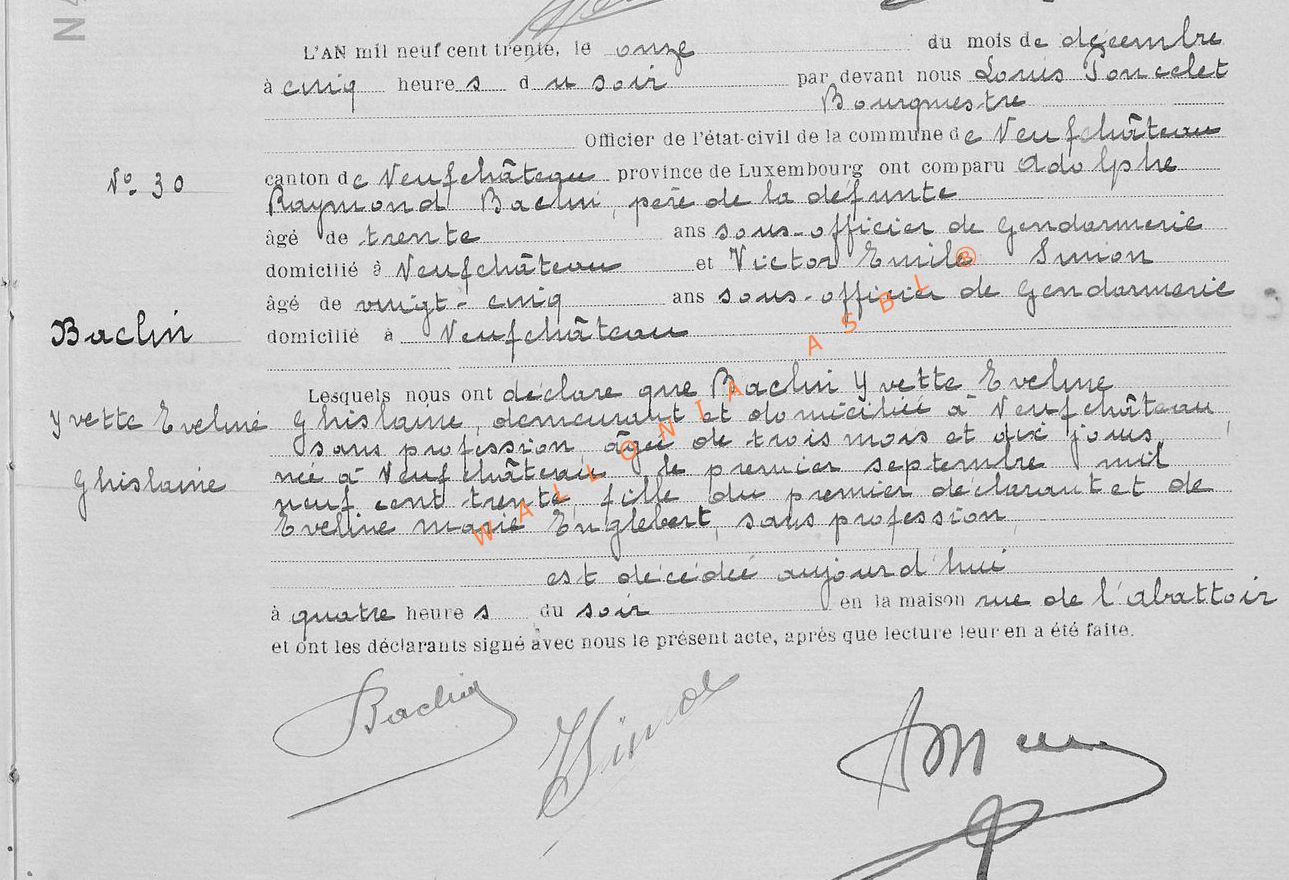 L'AN mil neuf cent trente, le onze du mois de décembre
à cinq heures du soir par devant nous Louis Poncelet
Bourgmestre
Officier de l'état-civil de la commune de Neufchâteau
N° 30
canton de Neufchâteau province de Luxembourg ont comparu Adolphe
Raymond Baclin, père de la défunte
âgé de trente ans sous-officier de gendarmerie
domicilié à Neufchâteau et Victor Emile Simon
âgé de vingt-cinq ans sous-officier de gendarmerie
Baclin
domicilié à Neufchâteau
Lesquels nous ont déclaré que Baclin Yvette Eveline
Yvette Eveline
Ghislaine, demeurant et domiciliée à Neufchâteau
sans profession, âgée de trois mois et dix jours,
Ghislaine
née à Neufchâteau le premier septembre mil
neuf cent trente fille du premier déclarant et de
Eveline Marie Englebert, sans profession,
est décédée aujourd'hui
à quatre heures du soir en la maison rue de l'abattoir
et ont les déclarants signé avec nous le présent acte, après que lecture leur en a été faite.
Baclin
Simon
WALLONIA ASBL ®